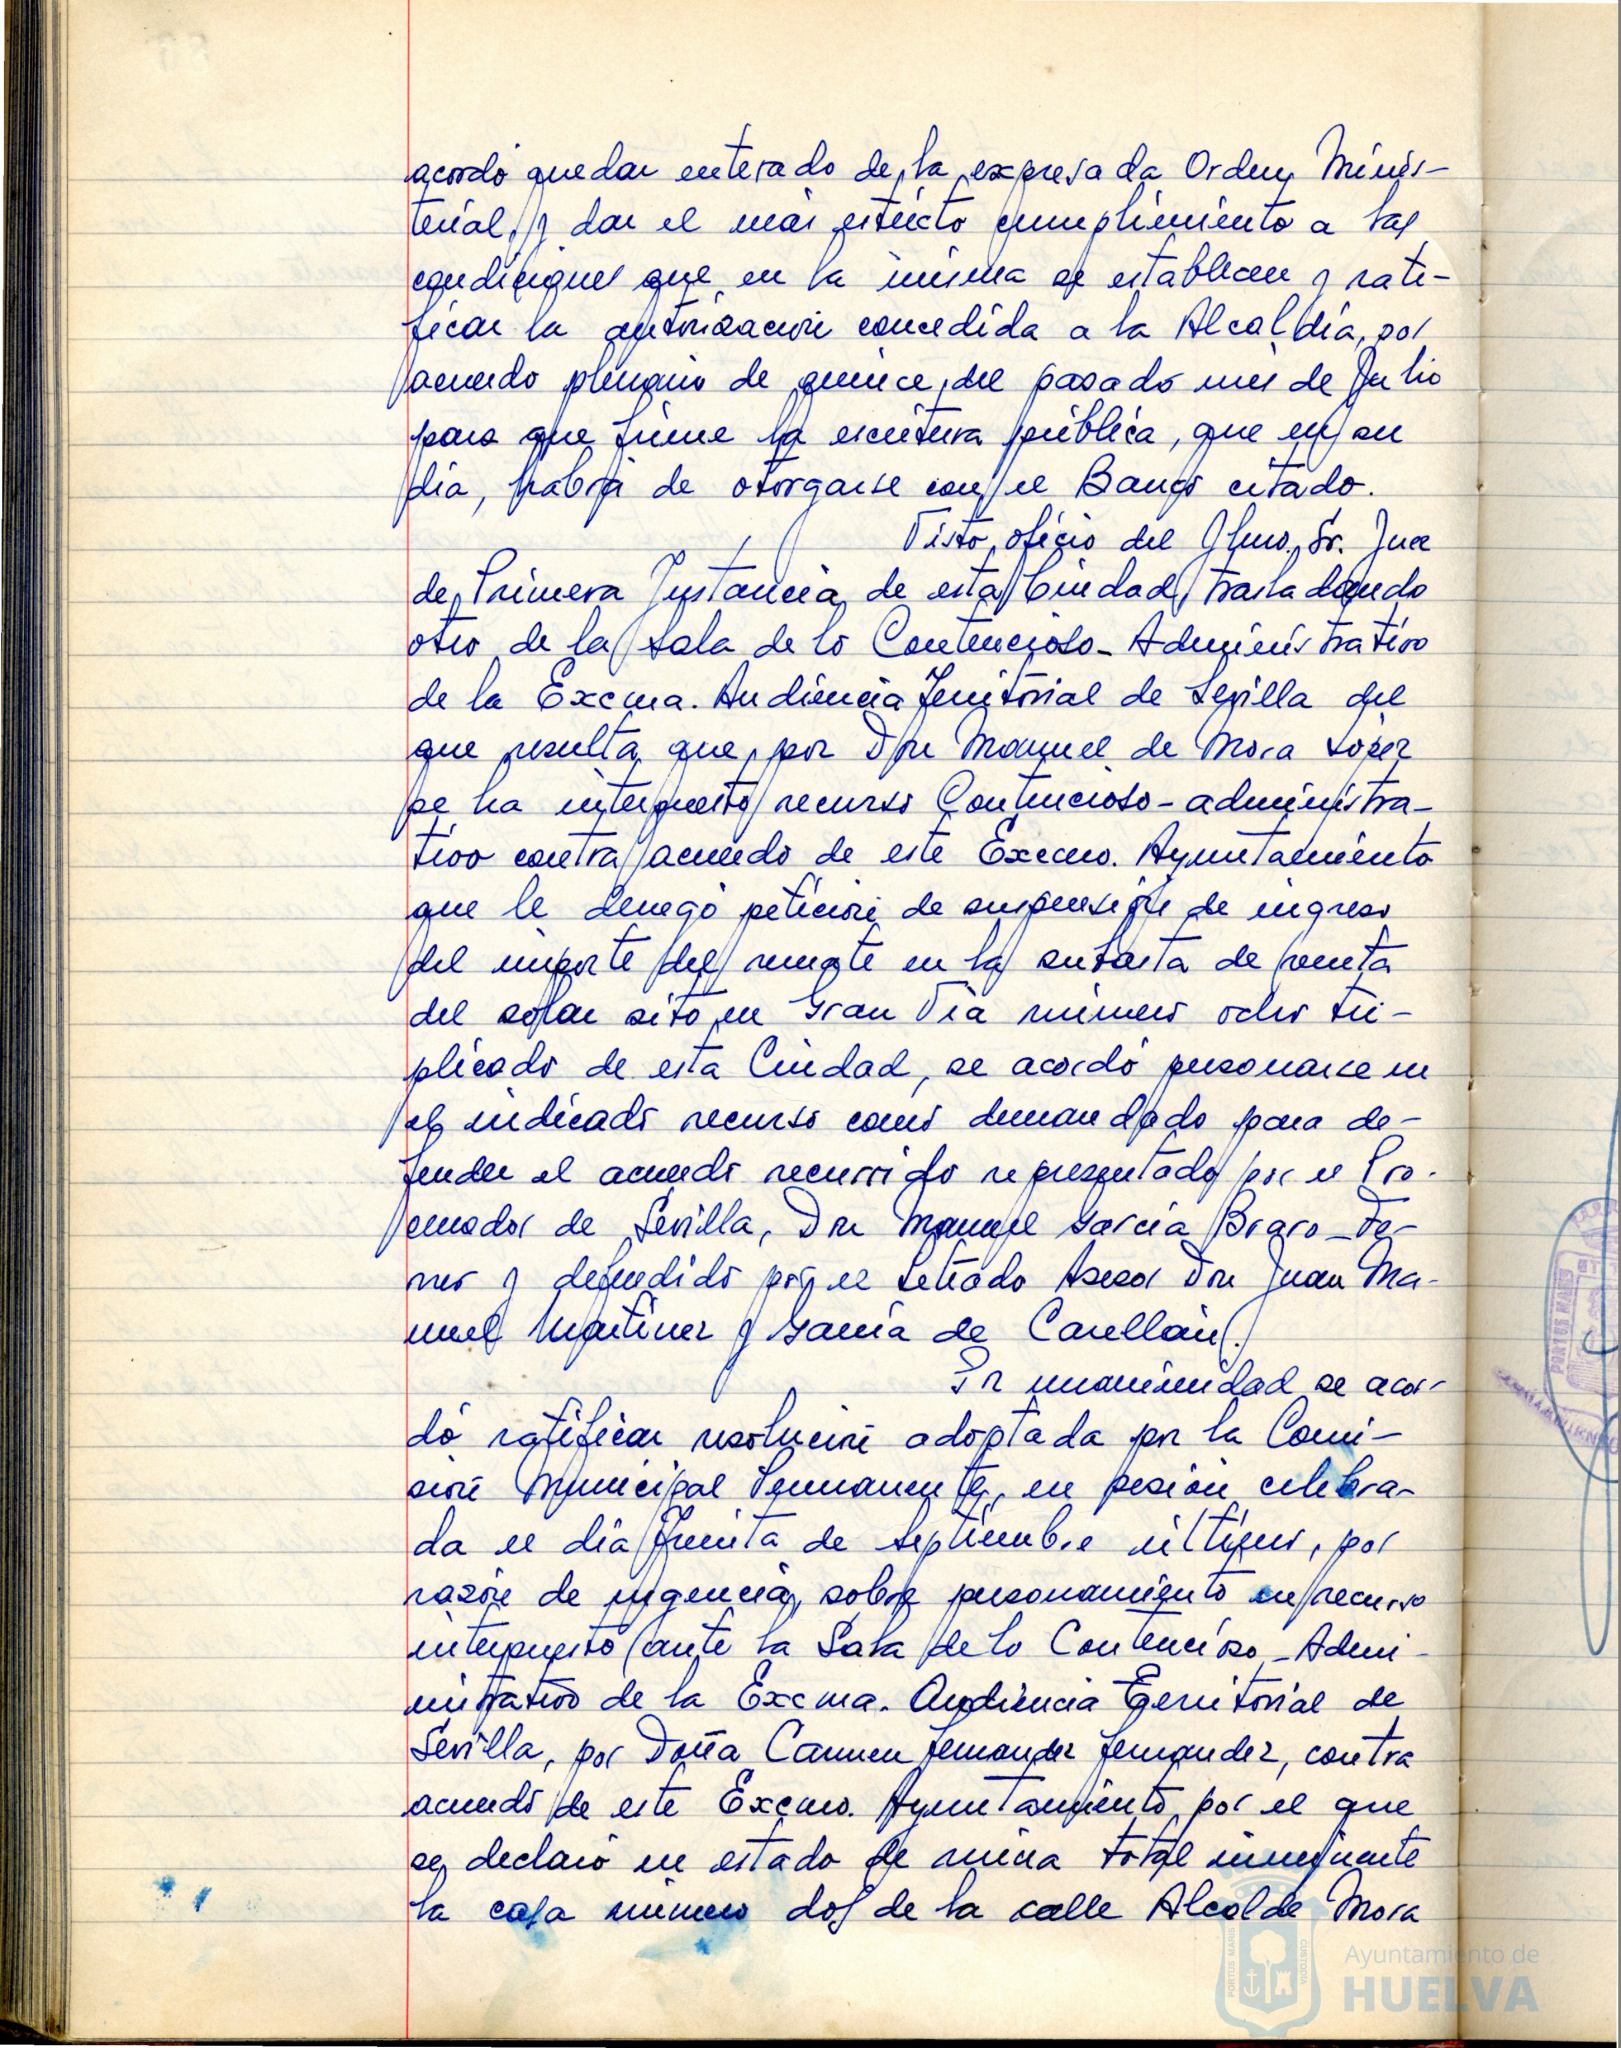 acordó quedar enterado de la expresada Orden Minis-
terial y dar el más estricto cumplimiento a las
condiciones que en la misma se establecen y rati-
ficar la autorización concedida a la Alcaldía, por
acuerdo plenario de quince del pasado mes de Julio
para que firme la escritura pública, que en su
día, habrá de otorgarse con el Banco citado.
Visto oficio del Ilmo. Sr. Juez
de Primera Instancia de esta Ciudad, trasladando
otro de la Sala de lo Contencioso-Administrativo
de la Excma. Audiencia Territorial de Sevilla del
que resulta que por Don Manuel de Mora López
se ha interpuesto recurso Contencioso-administra-
tivo contra acuerdo de este Excmo. Ayuntamiento
que le denegó petición de suspensión de ingreso
del importe del remate en la subasta de venta
del solar sito en Gran Vía número ocho tri-
plicado de esta Ciudad, se acordó personarse en
el indicado recurso como demandado para de-
fender el acuerdo recurrido representado por el Pro-
curador de Sevilla, Don Manuel García Bravo-Fe-
rrer y defendido por el Letrado Asesor Don Juan Ma-
nuel Martínez y García de Casellán.
Por unanimidad se acor-
dó ratificar resolución adoptada por la Comi-
sión Municipal Permanente, en sesión celebra-
da el día treinta de Septiembre último, por
razón de urgencia, sobre personamiento en recurso
interpuesto ante la Sala de lo Contencioso-Admi-
nistrativo de la Excma. Audiencia Territorial de
Sevilla, por Doña Carmen Fernández Fernández, contra
acuerdo de este Excmo. Ayuntamiento por el que
se declaró en estado de ruina total inminente
la casa número dos de la calle Alcalde Mora
PORTUS MARIS
CUSTODIA
Ayuntamiento de
HUELVA